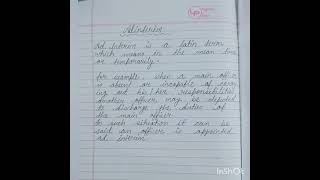 Ad. interim
Ad. Interim is a latin term
which means in the mean time
or temporarily.
for example, when a main officer
is absent or incapable of carry
ing out his/her responsibilities
another officer may be deputed
to discharge the duties of
the main officer
In such situation it can be
said an officer is appointed
ad. interim
InShOt